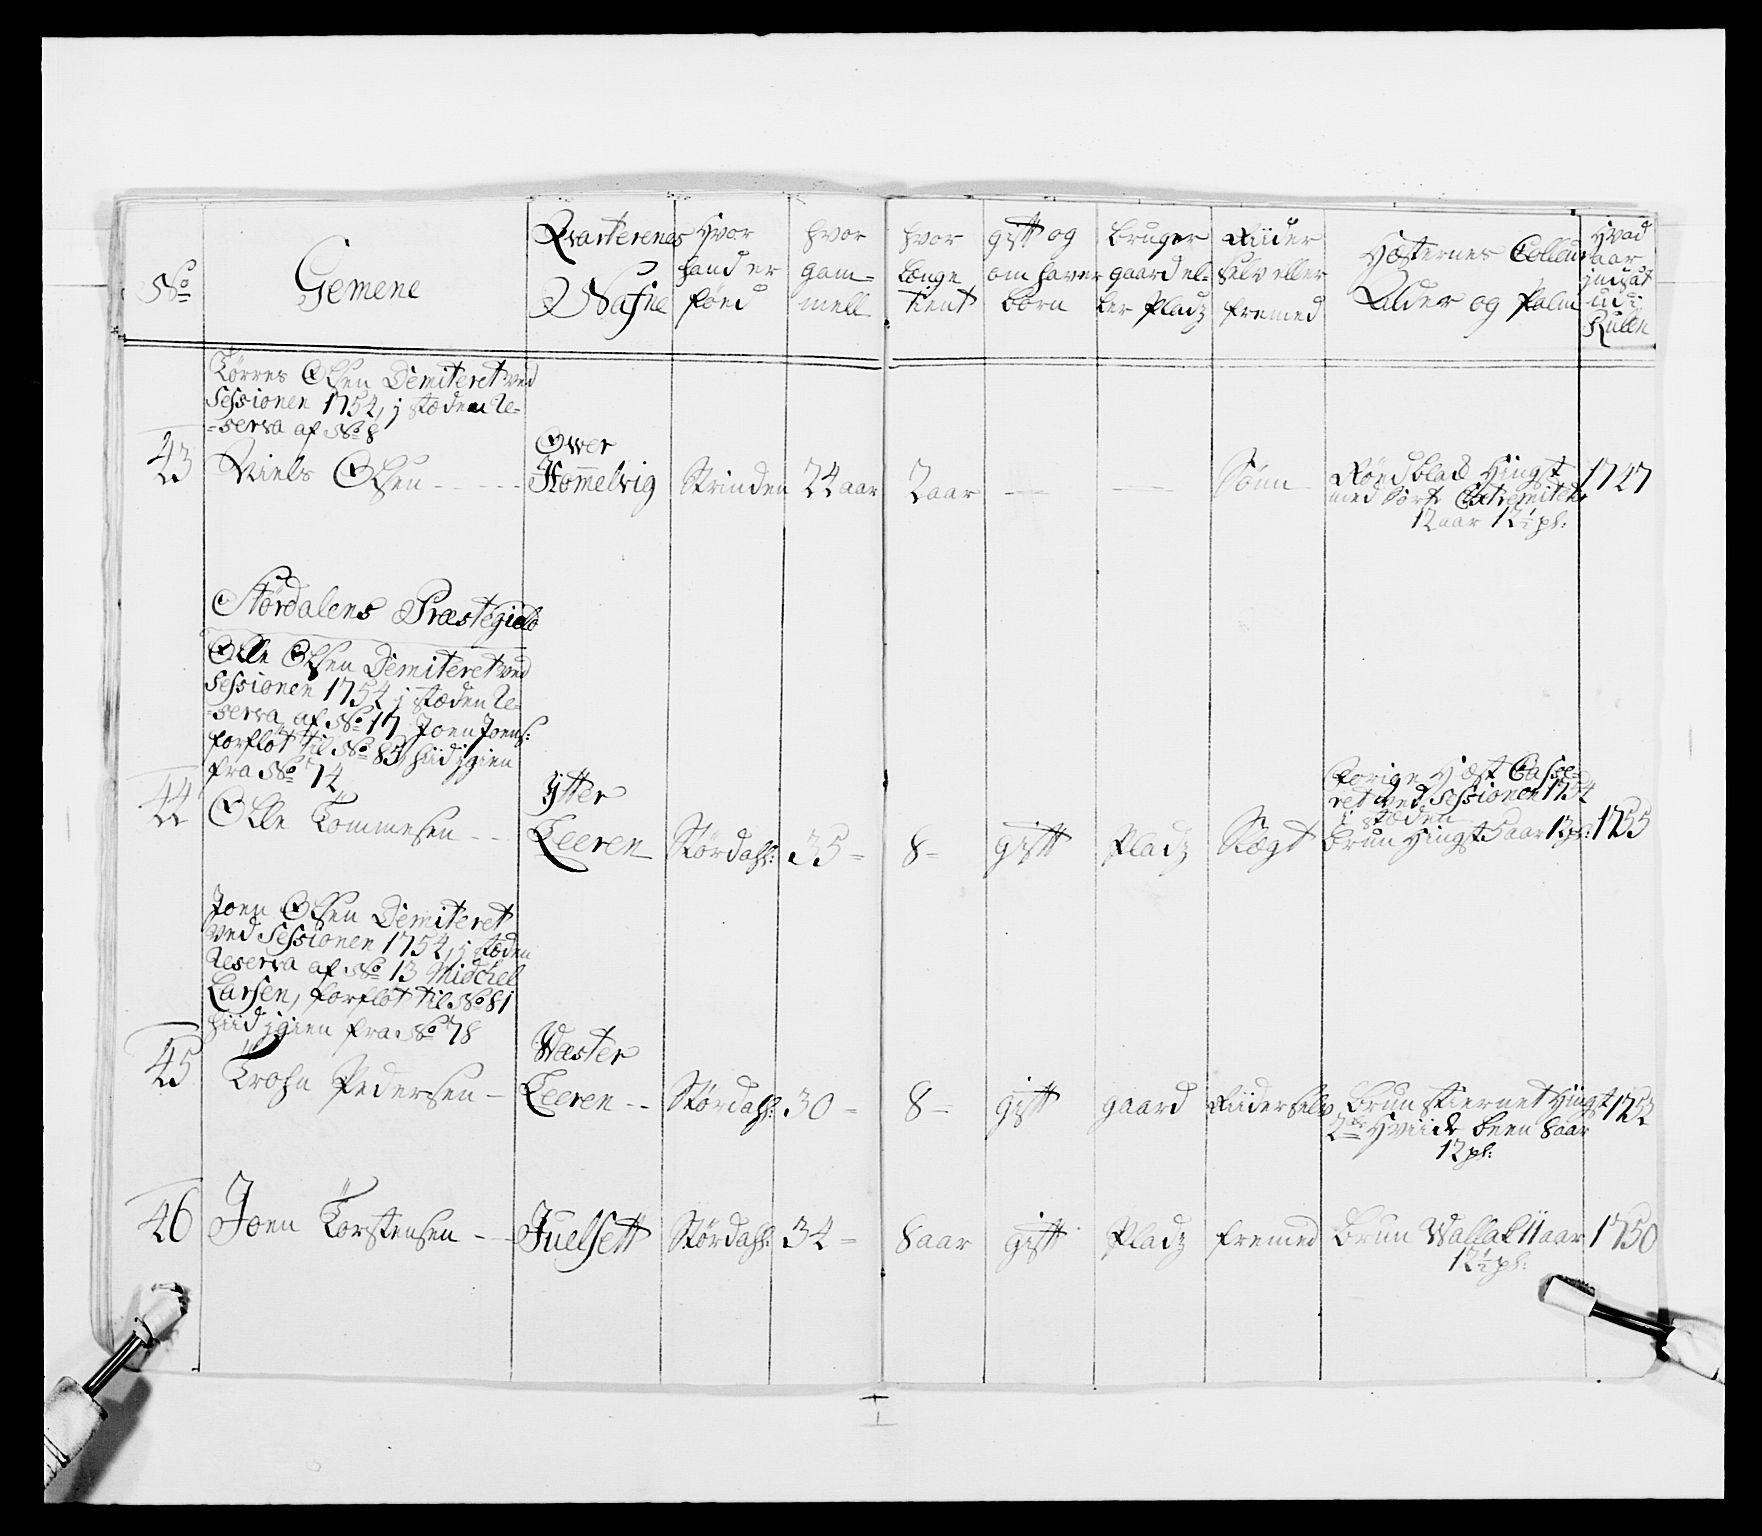 No
Gemene
Qvarterenes
Nafne
Hvor
hand er
föed
hvor
gam=
mell
hvor
længe
tient
gift og
om haver
börn
bruger
gaard el=
ler Pladz
Riider
selv eller
fremed
Hæsternes Colleur
Alder og Palm
Hvad
aar
indsat
udi
Rullen
Törres Olsen Demiteret ved
Sessionen 1754, j stæden Re=
=serva af No 8
43
Niels Olsen
Over
Hommelvig
Strinden
24 aar
2 aar
Sönn
Röedblac Hingst
med sort Extremitet
12 aar 12½ pl:
1747
Stördalens Præstegield
Olle Olsen Demiteret ved
Sessionen 1754 j stæden Re=
=serva af No 17 Joen Joens:
forfløt til No 85 hiid jgien
fra No 74
44
Olle Tommesen
Ytter
Leeren
Stördahl:
35 =
8 =
gift
Pladz
Slægt
Forige Hæst Casse=
ret ved Sessionen 1754
i stæden
brun Hingst 5 aar 13 pl:
1755
Joen Olsen Demiteret
ved Sessionen 1754, j stæden
Reserva af No 13 Midchel
Larsen, forfløt til No 81
hiid jgien fra No 78
45
Trohn Pedersen
Wæster
Leeren
Stördahl:
30 =
8 =
gift
gaard
Riider selv
brun stiernet Hingst
2de Hviide been 8 aar
12 pl:
1752
46
Joen Torstensen
Juelsett
Stördahl:
34 =
8 aar
gift
Pladz
fremed
brun Wallak 11 aar
12½ pl:
1750